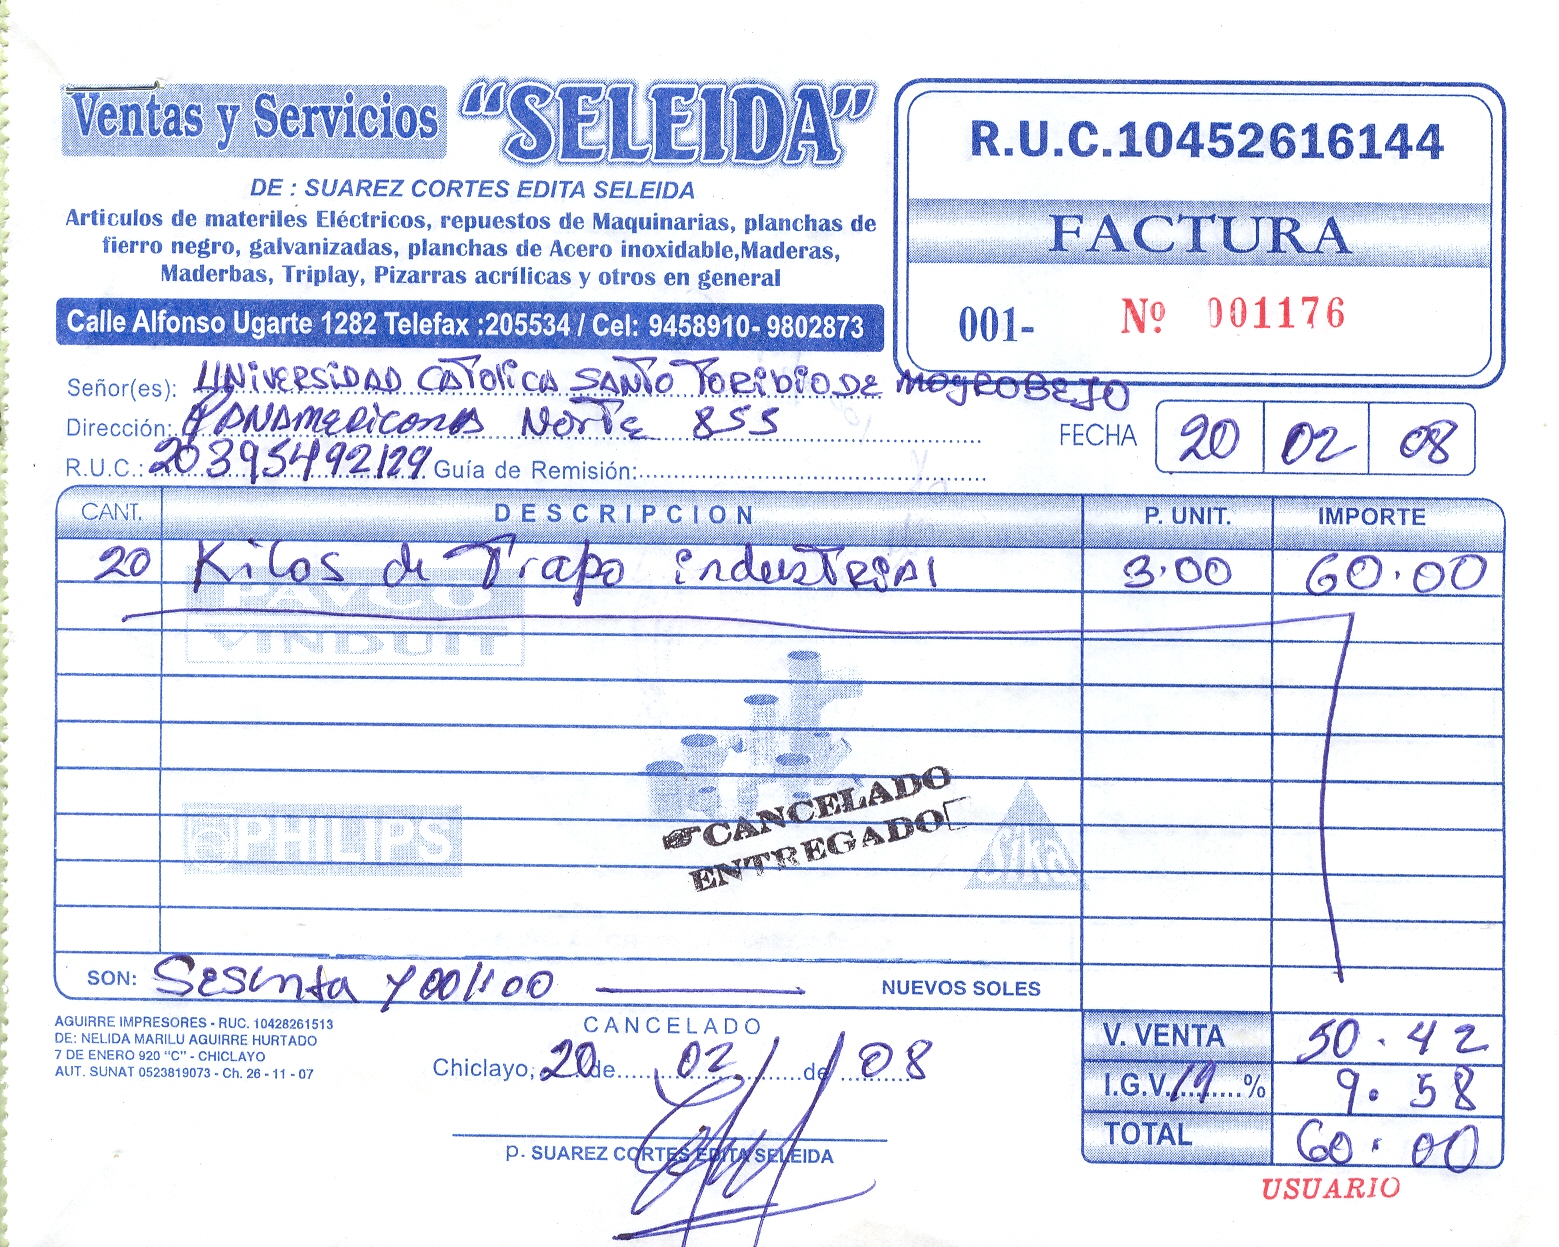 Ventas y Servicios "SELEIDA"
DE : SUAREZ CORTES EDITA SELEIDA
Articulos de materiles Eléctricos, repuestos de Maquinarias, planchas de
fierro negro, galvanizadas, planchas de Acero inoxidable,Maderas,
Maderbas, Triplay, Pizarras acrílicas y otros en general
Calle Alfonso Ugarte 1282 Telefax :205534 / Cel: 9458910- 9802873
R.U.C.10452616144
FACTURA
001- Nº 001176
Señor(es): UNIVERSIDAD CATOLICA SANTO TORIBIO DE MOGROBEJO
Dirección: PANAMERICANA NORTE 855
FECHA 20 02 08
R.U.C.: 20395492129 Guía de Remisión:
CANT. DESCRIPCION P. UNIT. IMPORTE
20 Kilos de Trapo industrial 3.00 60.00
PAVCO
VINDUIT
PHILIPS
Sika
CANCELADO
ENTREGADO
SON: Sesenta y 00/100 NUEVOS SOLES
AGUIRRE IMPRESORES - RUC. 10428261513
DE: NELIDA MARILU AGUIRRE HURTADO
7 DE ENERO 920 "C" - CHICLAYO
AUT. SUNAT 0523819073 - Ch. 26 - 11 - 07
CANCELADO
Chiclayo, 20 de 02 de 08
p. SUAREZ CORTES EDITA SELEIDA
V. VENTA 50.42
I.G.V. 19 % 9.58
TOTAL 60.00
USUARIO